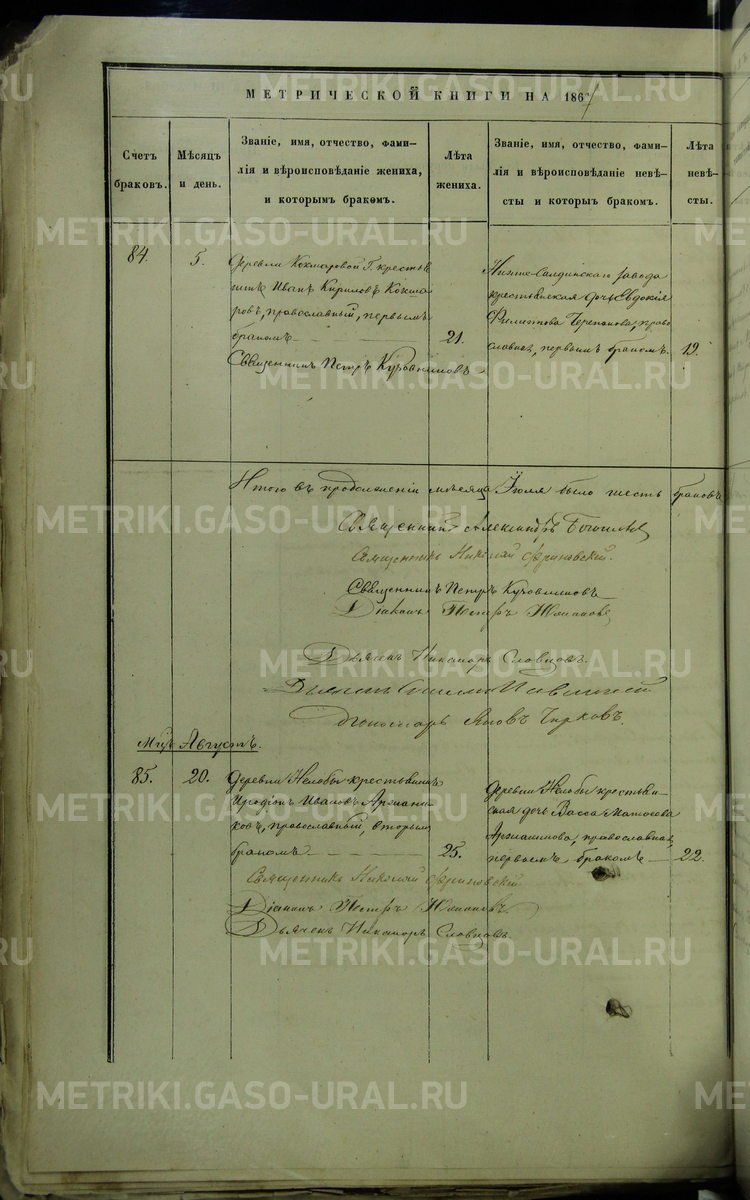 МЕТРИЧЕСКОЙ КНИГИ НА 1867
Счетъ браковъ.
Мѣсяцъ и день.
Званіе, имя, отчество, фами-
лія и вѣроисповѣданіе жениха,
и которымъ бракомъ.
Лѣта жениха.
Званіе, имя, отчество, фами-
лія и вѣроисповѣданіе невѣ-
сты и которыъ бракомъ.
Лѣта невѣ-
сты.
84.
5.
Деревни Кокшаровой Г. крестья
нинъ Иванъ Кириловъ Кокша
ровъ, православный, первымъ
бракомъ
21.
Нижне-Салдинскаго завода
крестьянская дочь Евдокія
Филиппова Черепанова, право
славная, первымъ бракомъ.
19.
Священникъ Петръ
Итого въ продолженіи мѣсяца Іюля было шесть браковъ
Священникъ Александръ
Священникъ Николай
Священникъ Петръ
Діаконъ Петръ
Дьячекъ Никаноръ Словцовъ.
Дьячекъ
Пономарь Яковъ Чирковъ.
Мцъ Августъ.
85.
20.
Деревни Нелобы крестьянинъ
Иродіонъ Ивановъ
православный, вторымъ
бракомъ
25.
Деревни Нелобы крестьян-
ская дочь Васса Матвеева
православная,
первымъ бракомъ
22.
Священникъ Николай
Діаконъ Петръ
Дьячекъ Никаноръ Словцовъ.
METRIKI.GASO-URAL.RU